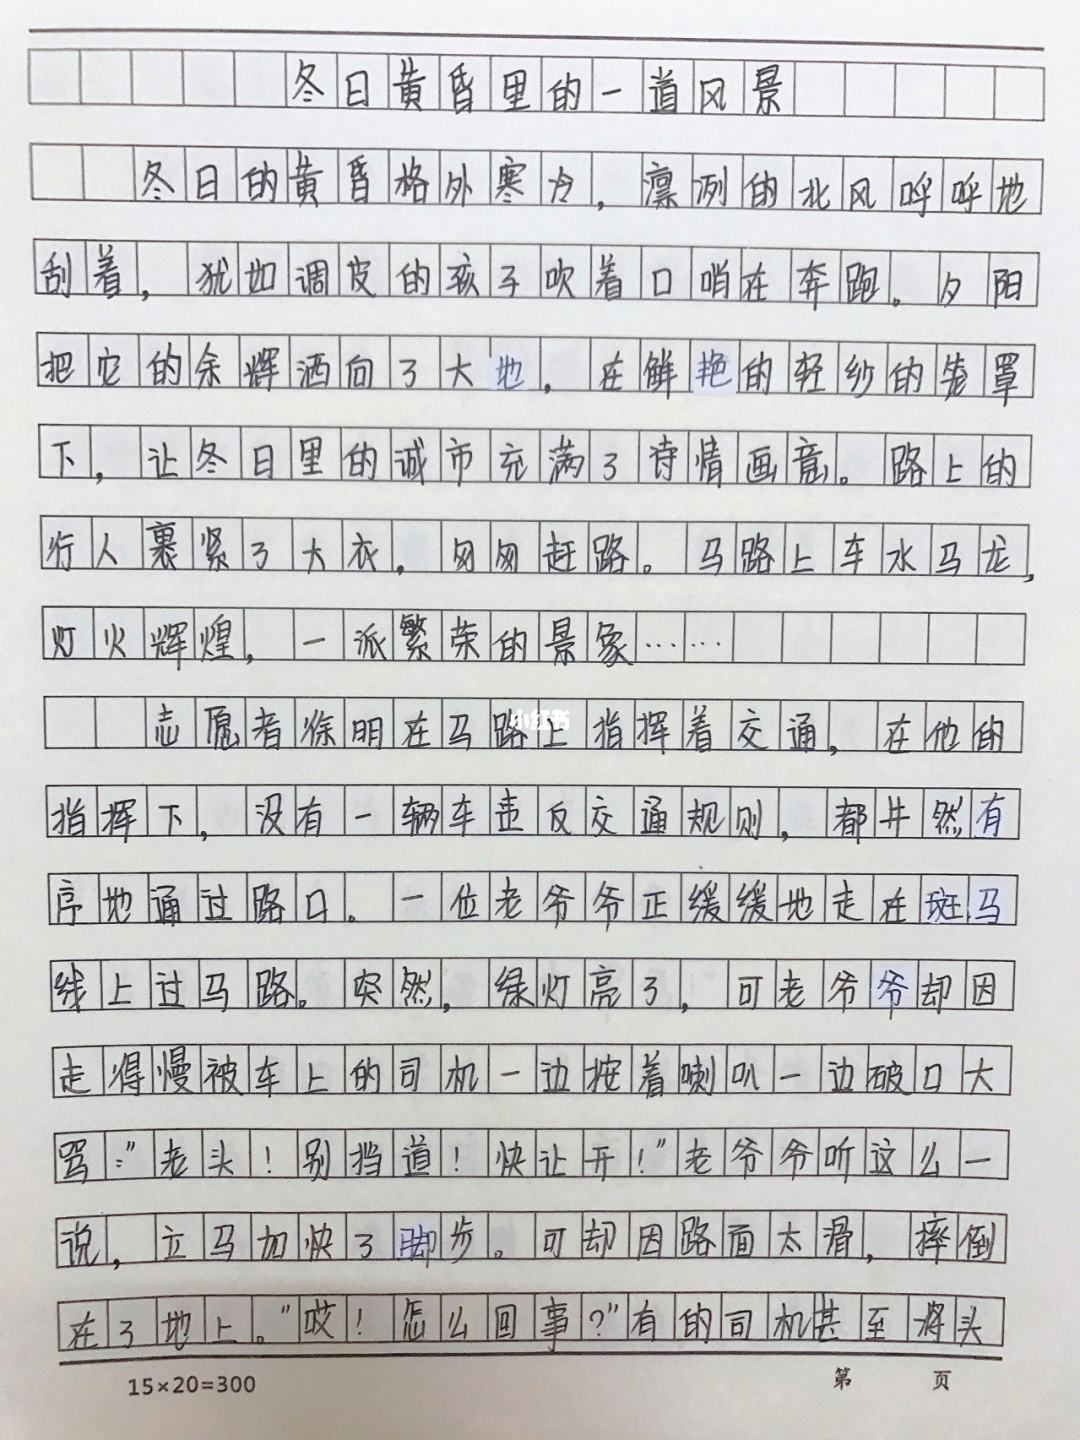 冬日黄昏里的一道风景
冬日的黄昏格外寒冷，凛冽的北风呼呼地
刮着，犹如调皮的孩子吹着口哨在奔跑。夕阳
把它的余辉洒向了大地，在鲜艳的轻纱的笼罩
下，让冬日里的城市充满了诗情画意。路上的
行人裹紧了大衣，匆匆赶路。马路上车水马龙，
灯火辉煌，一派繁荣的景象……
志愿者徐明在马路上指挥着交通，在他的
小红书
指挥下，没有一辆车违反交通规则，都井然有
序地通过路口。一位老爷爷正缓缓地走在斑马
线上过马路。突然，绿灯亮了，可老爷爷却因
走得慢被车上的司机一边按着喇叭一边破口大
骂:"老头！别挡道！快让开！"老爷爷听这么一
说，立马加快了脚步。可却因路面太滑，摔倒
在了地上。"哎！怎么回事？"有的司机甚至将头
15×20=300 第 页